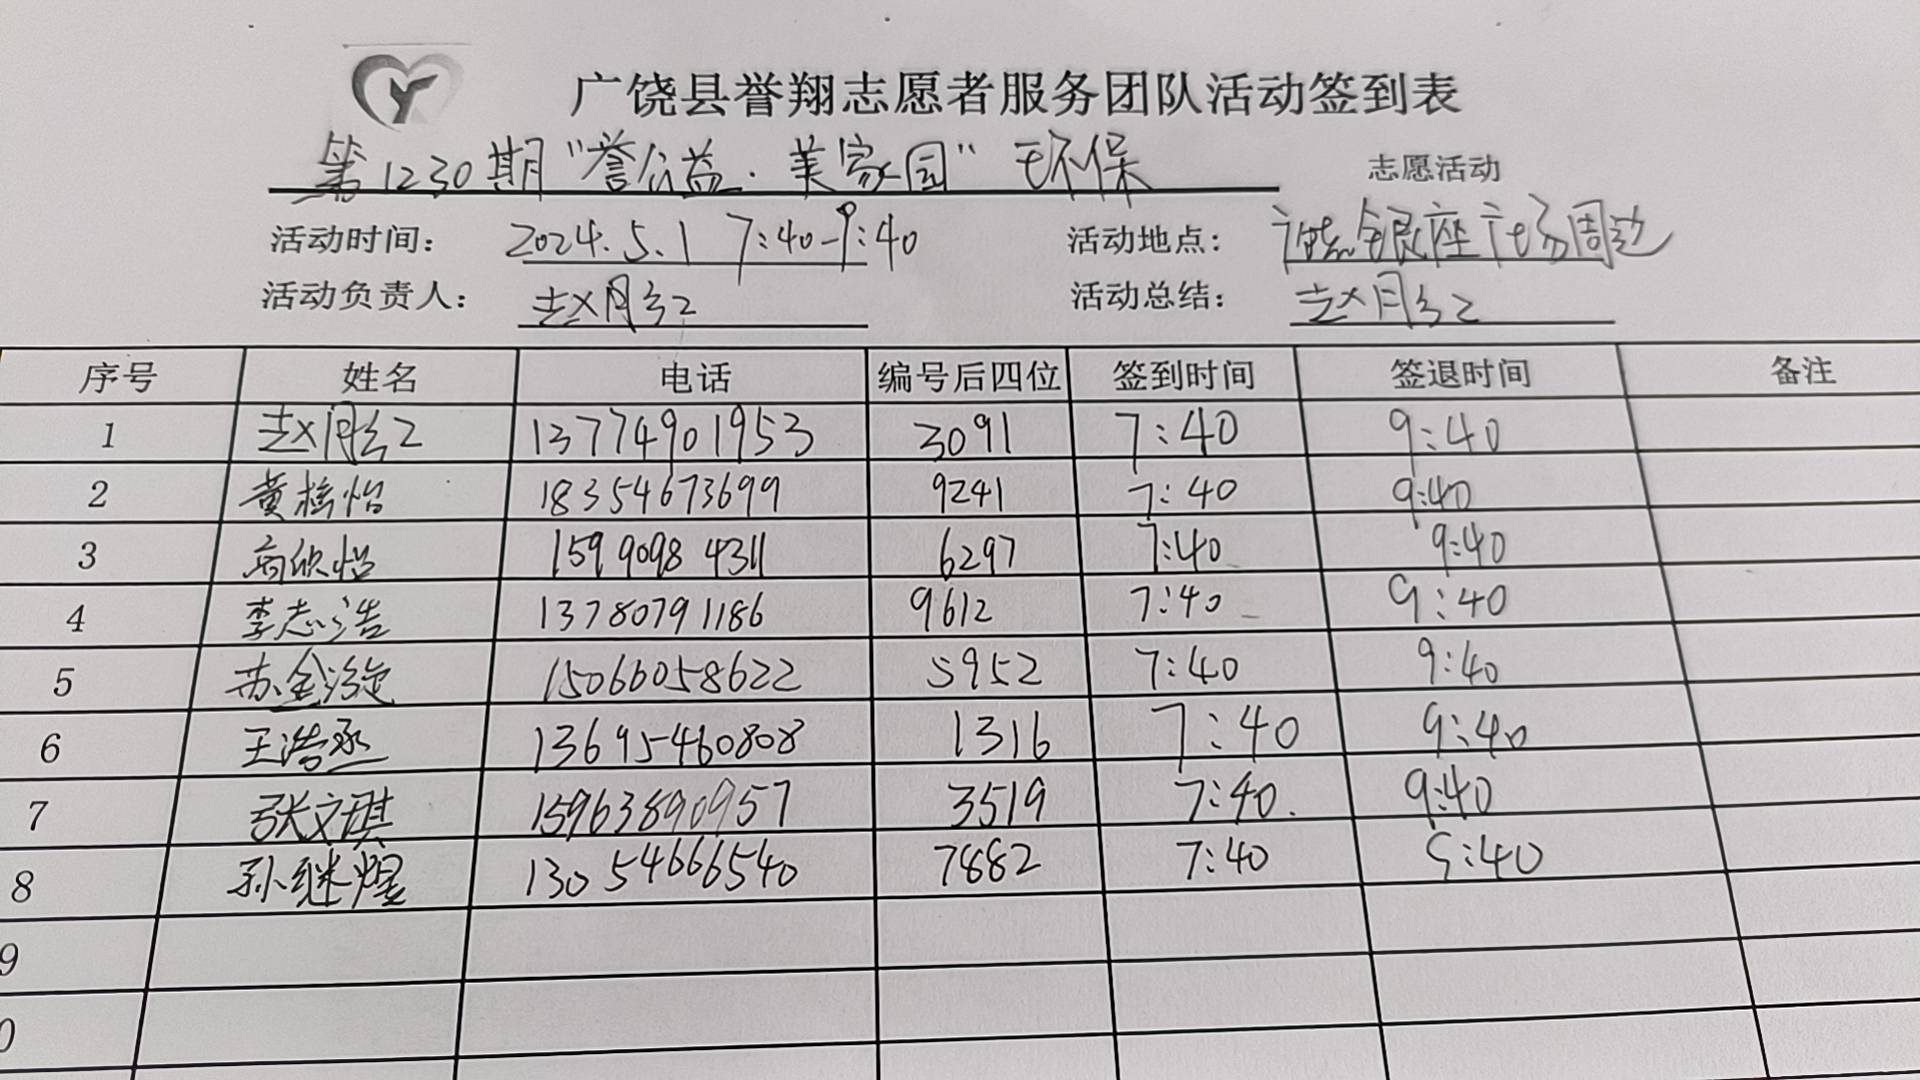 广饶县誉翔志愿者服务团队活动签到表
第1230期“誉公益·美家园”环保 志愿活动
活动时间: 2024.5.1 7:40-9:40 活动地点: 银座广场周边
活动负责人: 赵月红 活动总结: 赵月红
序号 姓名 电话 编号后四位 签到时间 签退时间 备注
1 赵月红 13774901953 3091 7:40 9:40
2 黄怡 18354673699 9241 7:40 9:40
3 欣怡 15990984311 6297 7:40 9:40
4 李志浩 13780791186 9612 7:40 9:40
5 苏金 15066058622 5952 7:40 9:40
6 王浩丞 13695460808 1316 7:40 9:40
7 张文琪 15963890957 3519 7:40. 9:40
8 孙继煜 13054666540 7882 7:40 9:40
9
0